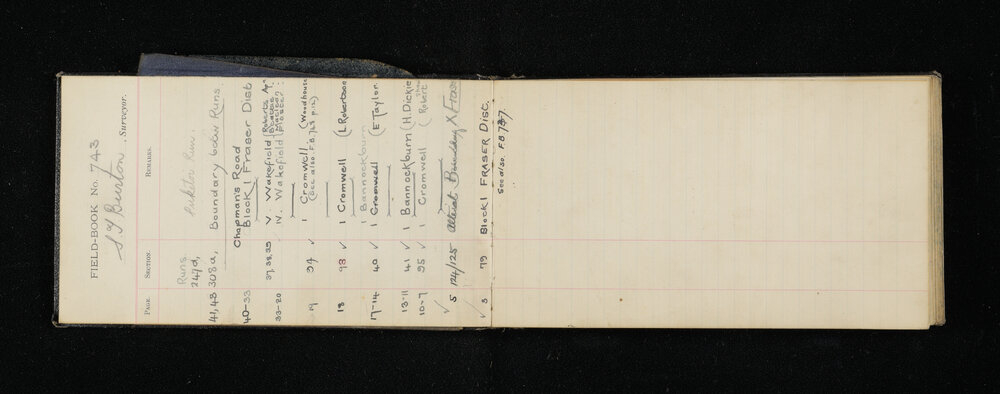 FIELD-BOOK No. 743
S. T. Burton, Surveyor.
PAGE. SECTION. REMARKS.
Runs Run.
41, 43 247d, 308a, Boundary bdw Runs
Chapman's Road
40-33 Block I Fraser Dist
37, 38, 39 V Wakefield (Roberts,
33-20 IV. Wakefield
19 94 ✓ I Cromwell (Woodhouse
(See also F.B. 748 p.12)
18 93 ✓ I Cromwell (L Robertson
I Bannockburn
17-14 40 ✓ I Cromwell (E Taylor
13-11 41 ✓ I Bannockburn (H. Dickie
10-7 95 ✓ I Cromwell (Robert
✓ 5 124/125 Boundary X Fraser
✓ 3 79 Block I FRASER DIST.
See also. F.B 737.